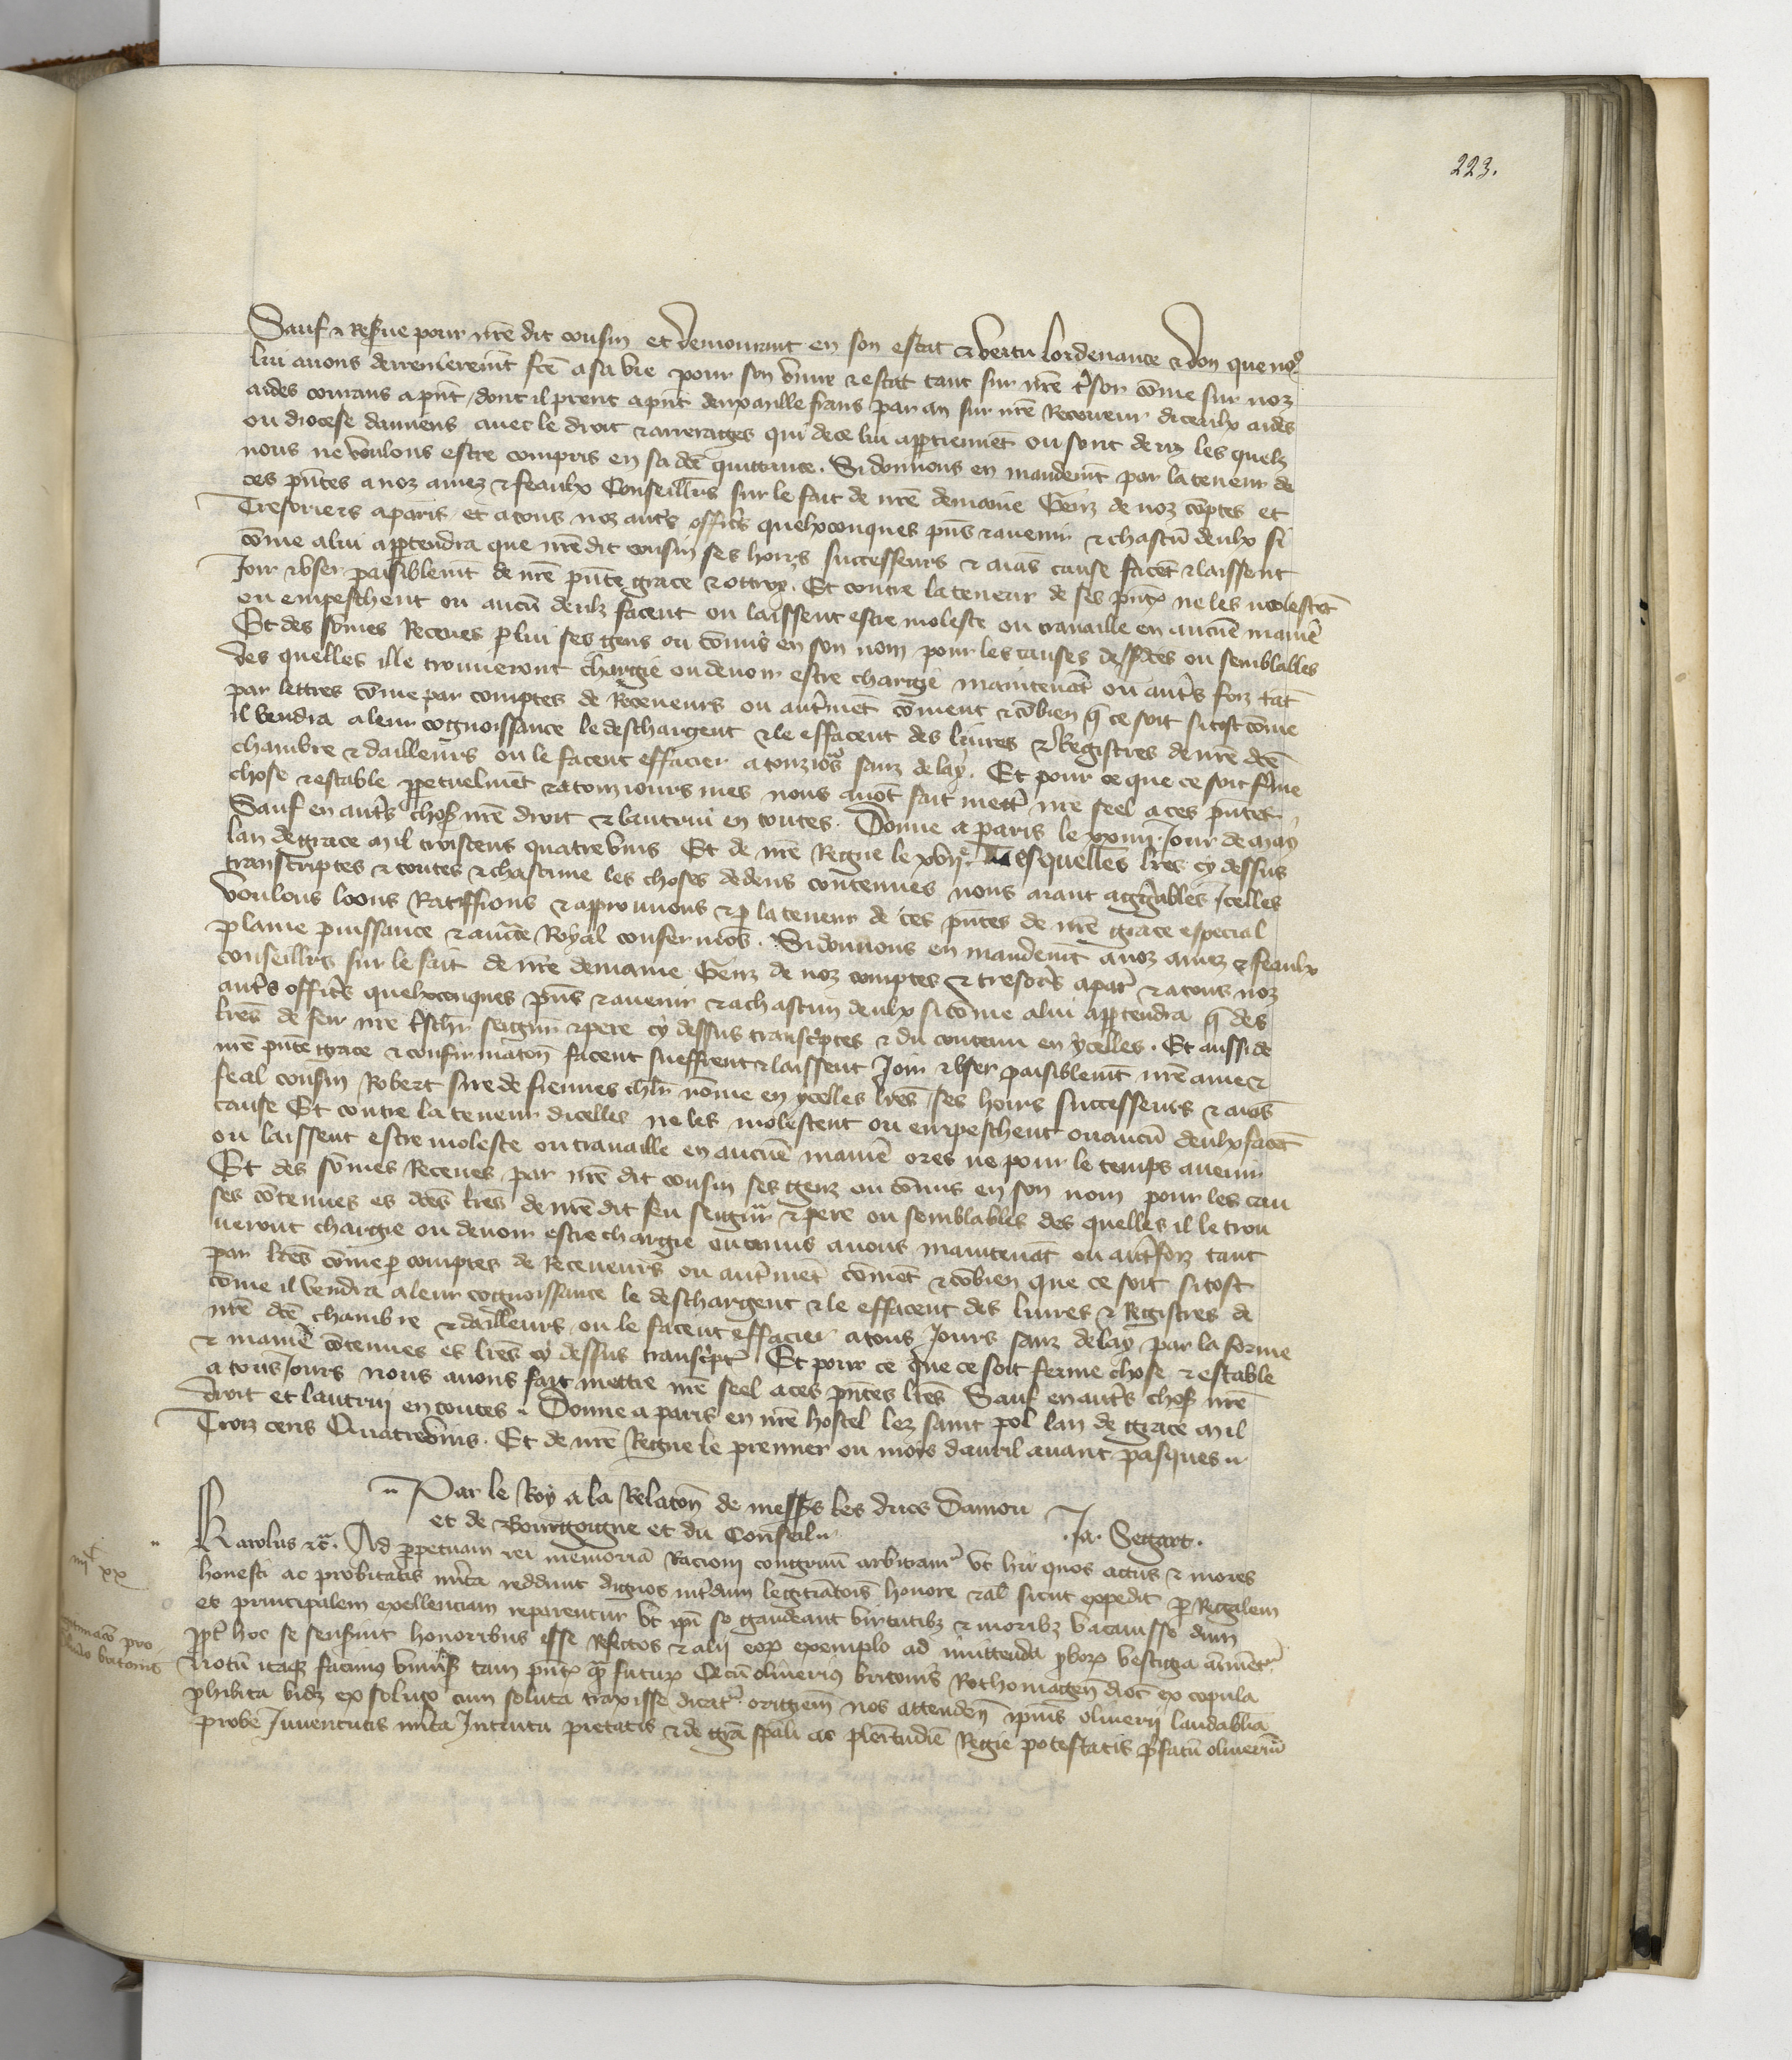 223.
Sauf & Reserve pour nr̄e dit cousin et demourant en son estat & vertu lordenance & don que noꝰ
lui avons derrenieremt̄ fcē a sa vie pour son vivre & estat tant sur nr̄e t̓sor cōme sur noz
aides courans a pn̄t, dont il prent a pn̄t deux mille frans par an sur nr̄e Receveur diceulx aides
ou diocese damiens avec le droit & arrerages qui de ce lui appartiennēt ou sont deuz les quelz
nous ne voulons estre compris en sa dcē quittance. Si donnons en mandemt̄ par la teneur de
ces pn̄tes a noz amez & feaulx Conseill̄rs sur le fait de nr̄e demaine Genz de noz cōptes et
Tresoriers a paris et a tous noz aut̓s offic̓s quelxconques pn̄s & avenir & chascū deulx si
cōme a lui appartendra que nr̄e dit cousin ses hoirs successeurs & aians cause facēt & laissent
Joir & user paisiblemt̄ de nr̄e pn̄te grace & ottroy. Et contre la teneur de ses pn̄tes ne les molestēt
ou empeschent ou aucū deulz facent ou laissent estre moleste ou travaille en aucūe manie̓
Et des sōmes Receues p lui ses gens ou cōmis en son nom pour les causes dessusdcēs ou semblables
des quelles ille trouveront chargie ou devoir estre chargie maintenāt ou aut̓s foiz tāt
par lettres cōme par comptes de Receveurs ou aut̓mēt cōment & cōbien q̄ ce soit si tost cōme
il vendra a leur cognoissance le deschargent & le effacent des livres & Registres de nr̄e dcē
chambre & dailleurs ou le facent effacier a touziours sanz delay. Et pour ce que ce soit ferme
chose & estable ppetuelmēt & a touziours mes nous avōs fait mett̓ nr̄e seel a ces pn̄tes
Sauf en aut̓s choses nr̄e droit & lautrui en toutes. Donne a paris le xxiiij. Jour de may
lan de grace mil troiscens quatrevins Et de nr̄e Regne le xvij.ᵉ Lesquelles lr̄es cy dessus
transcriptes & toutes & chascune les choses dedens contenues nous aiant agg̓ables Icelles
voulons loons Ratiffions & approuvons & p la teneur de ces pn̄tes de nr̄e grace especial
plaine puissance & auctē Royal confermōs. Si donnons en mandemt̄ a noz amez & feaulx
conseill̄rs sur le fait de nr̄e demaine Genz de noz comptes & tresor̓s a par̓ & a tous noz
aut̓s offic̓s quelxconques pn̄s & avenir & a chascun deulx si cōme a lui appartendra q̄ des
lr̄es de feu nr̄e t̓sch̄r seign̄r & pere cy dessus transc̓ptes & du contenu en ycelles. Et aussi de
nr̄e pn̄te grace & confirmatōn facent sueffrent & laissent Joir & user paisiblemt̄ nr̄e ame &
feal cousin Robert sire de fiennes ch̄lr nōme en ycelles lr̄es ses hoirs successeurs & aiās
cause Et contre la teneur dicelles ne les molestent ou empeschent ou aucū deulx facēt
ou laissent estre moleste ou travaille en aucūe manie̓ ores ne pour le temps avenir
Et des sōmes Receues par nr̄e dit cousin ses genz ou cōmis en son nom pour les cau
ses cōtenues es dcēs lr̄es de nr̄e dit feu seign̄r & pere ou semblables des quelles il le trou
veront chargie ou devoir estre chargie ou tenus avons maintenāt ou aut̓foiz tant
par lr̄es cōme p comptes de Receveurs ou aut̓mēt cōmēt & cōbien que ce soit si tost
cōme il vendra a leur cognoissance le deschargent & le effacent des livres & Registres de
nr̄e dcē chambre & dailleurs ou le facent effacier a tous Jours sanz delay par la forme
& manie̓ cōtenues es lr̄es cy dessus transc̓pt̓ Et pour ce que ce soit ferme chose & estable
a tous Jours nous avons fait mettre nr̄e seel a ces pn̄tes lr̄es Sauf en aut̓s choses nr̄e
droit et lautrui en toutes. Donne a paris en nr̄e hostel lez saint pol lan de grace mil
Troiz cens Quatrevins. Et de nr̄e Regne le premier ou mois davril avant pasques
Par le Roy a la Relatōn de messʳˢ les ducs Daniou
et de Bourgoigne et du Conseil
.Ja. Seggart.
iiijᶜ xx
Karolus &c̄. Ad ppetuam rei memoriā Racioni congruū arbitram̓ ut hii quos actus & mores
honesti ac probitatis m̓ita reddunt dignos int̓dum legitīatōis honore & al̄ sicut expedit p Regalem
et principalem exellenciam reparentur ut ip̄i se gaudeant virtutibȝ & moribȝ vacavisse dum
legitimacō pro
oliverio britonis
ppt̓ hoc se senserint honoribus esse Refectos & alii eoꝝ exemplo ad imittenda pboꝝ vestigia a͞ient̓
Notū itaqȝ facimꝰ univ̓sis tam pn̄tibꝰ q̄ futuris Qd̄ cū oliveriꝰ britonis Rothomageñ dioc̄ ex copula
phibita videlȝ ex soluto cum soluta traxisse dicat̓ origiēm nos attendeñ ip̄ius oliverii laudabilia
probe Juventutis m̓ita Intuitu pietatis & de grā sp̄ali ac plēitudīe Regie potestatis p̓fatū oliveriū